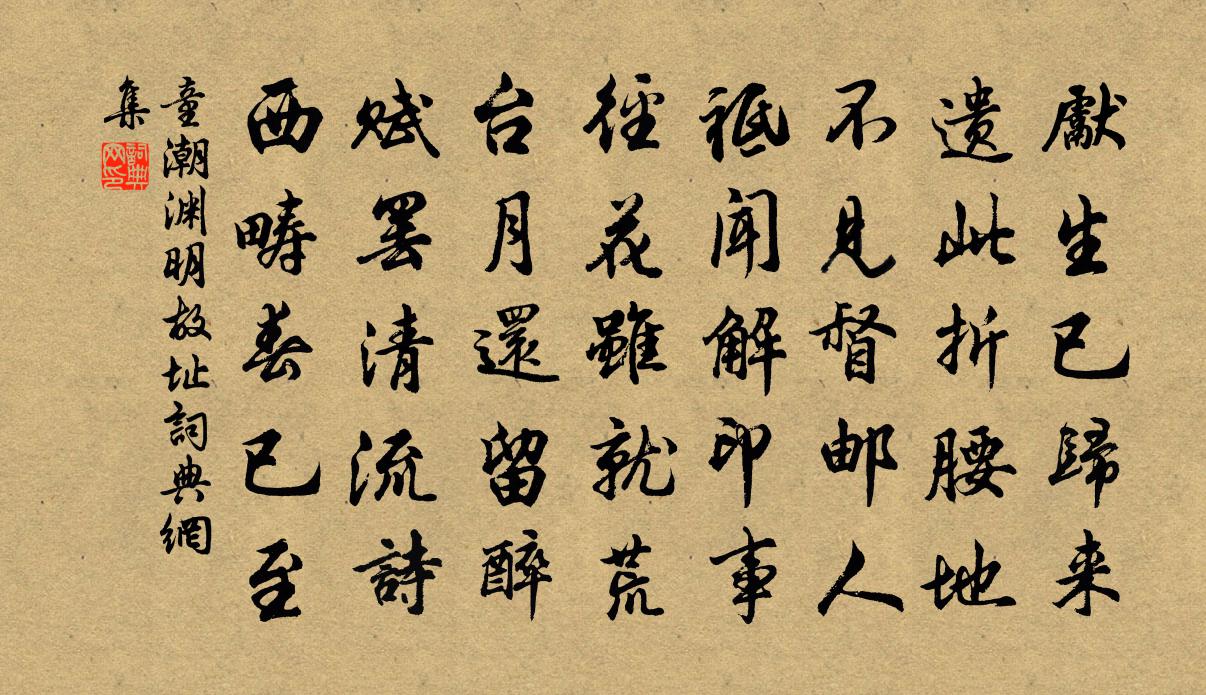 獻生已歸来
遗此折腰地
不見督邮人
祗聞解印事
徑花雖就荒
台月還留醉
赋罢清流詩
西疇春已至
童潮渊明故址詞典網
集
詞典网印